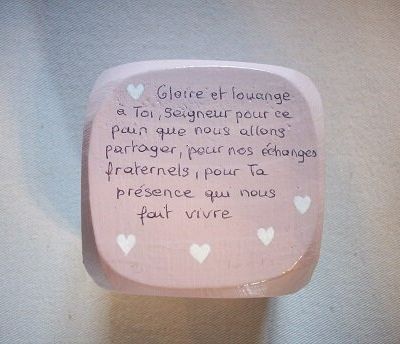 Gloire et louange
à Toi, Seigneur pour ce
pain que nous allons
partager, pour nos échanges
fraternels, pour Ta
présence qui nous
fait vivre